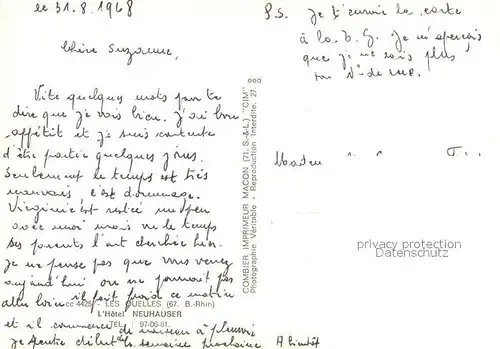 le 31.8.1968
Chère Suzanne,
Vite quelques mots pour te
dire que je vais bien. J'ai bon
appétit et je suis contente
d'être partie quelques jours.
Seulement le temps est très
mauvais c'est dommage.
Virginie est restée un peu
avec moi mais vu le temps
ses parents l'ont cherchée hier.
Je ne pense pas que vous venez
aujourd'hui on ne pourrait pas
aller loin il fait froid ce matin
et il commence de nouveau à pleuvoir
Je rentre début de la semaine prochaine
A bientôt
P.S. Je t'envoie la carte
à la B.G. Je m'aperçois
que je ne sais plus
ton N° de rue.
Madame
CC 4425 - LES QUELLES (67. B.-Rhin)
L'Hôtel NEUHAUSER
TEL. : 97-06-81.
COMBIER IMPRIMEUR MACON (71. S.-&-L.) "CIM"
Photographie Véritable - Reproduction Interdite. 27
privacy protection
Datenschutz